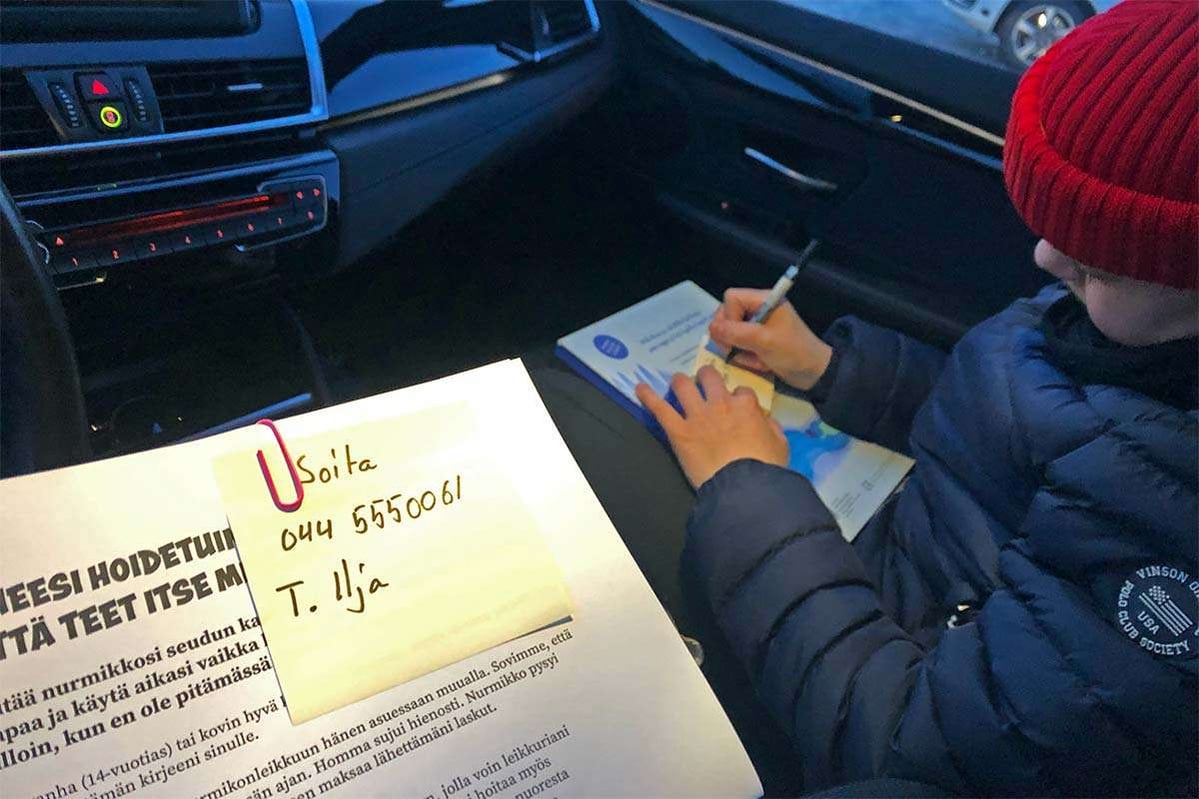 Soita
044 5550061
T. Ilja
HEESI HOIDETUI
TTÄ TEET ITSE M
ltää nurmikkosi seudun ka
paa ja käytä aikasi vaikka
lloin, kun en ole pitämässä
anha (14-vuotias) tai kovin hyvä
tämän kirjeeni sinulle.
rmikonleikkuun hänen asuessaan muualla. Sovimme, että
sän ajan. Homma sujui hienosti. Nurmikko pysyi
en maksaa lähettämäni laskut.
, jolla voin leikkuriani
i hoitaa myös
nuoresta
1 2 3 4 5 6 7 8
VINSON
POLO CLUB SOCIETY
USA